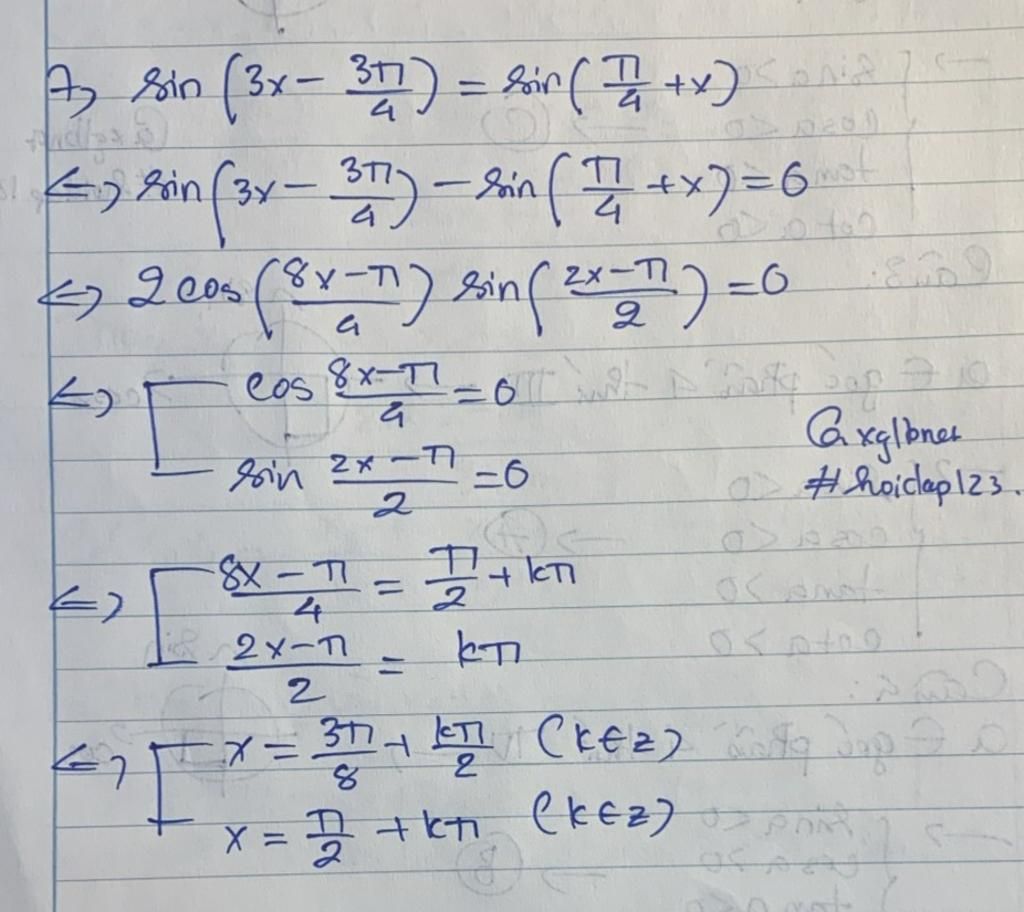 7, sin (3x − 3π/4) = sin (π/4 + x)
<=> sin (3x − 3π/4) − sin (π/4 + x) = 0
<=> 2 cos ((8x − π)/4) sin ((2x − π)/2) = 0
<=> [ cos (8x − π)/4 = 0
sin (2x − π)/2 = 0
@xglbnes
#hoidap123.
<=> [ (8x − π)/4 = π/2 + kπ
(2x − π)/2 = kπ
<=> [ x = 3π/8 + kπ/2 (k∈z)
x = π/2 + kπ (k∈z)